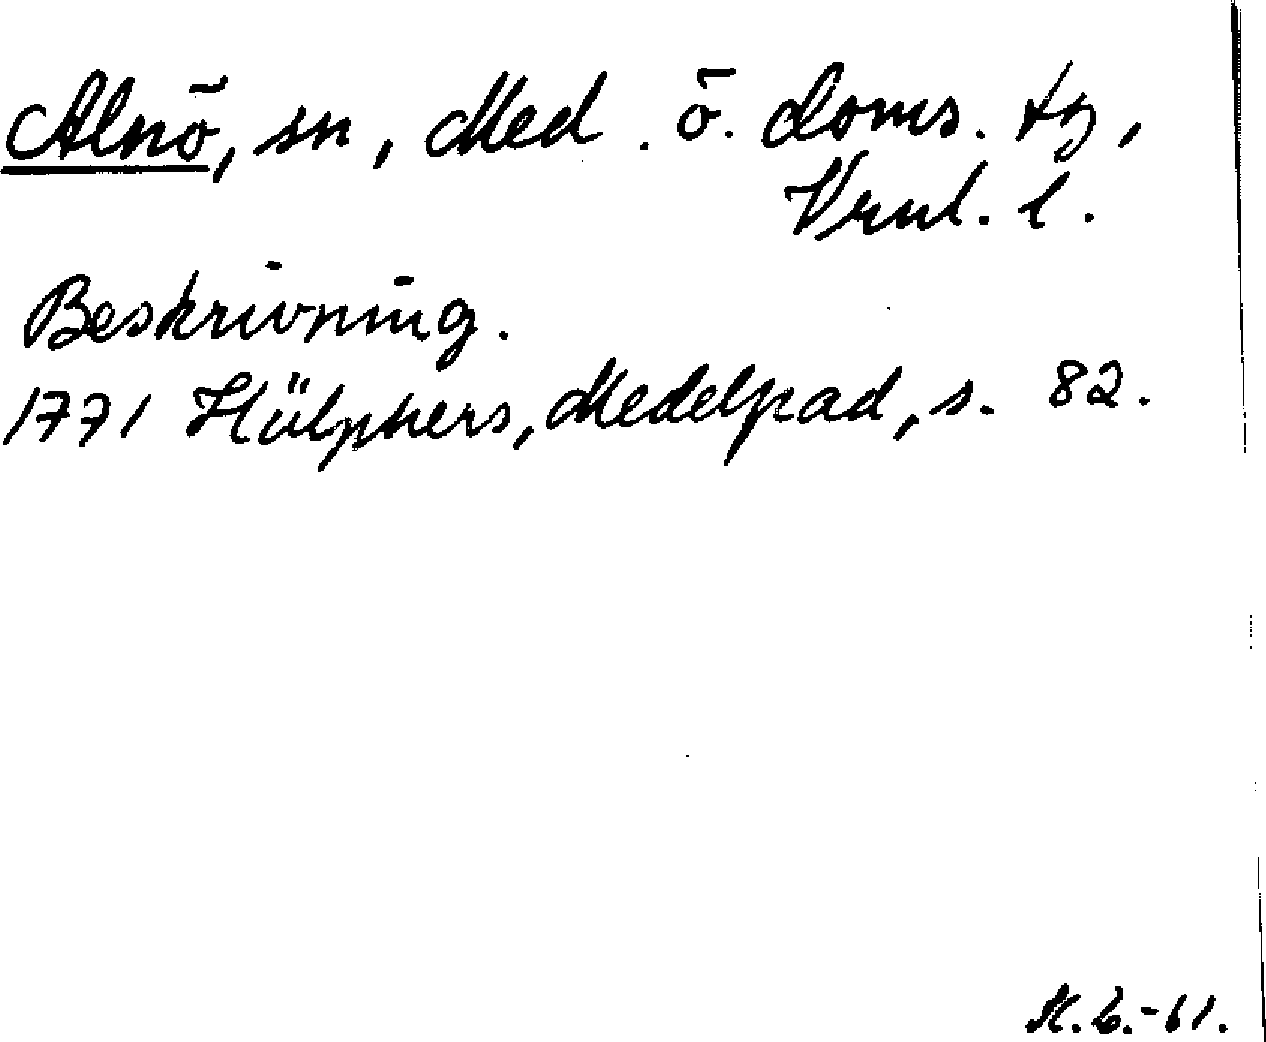 Alnö, sn, Med. ö. doms. tg,
Vrnl. l.
Beskrivning.
1771 Hülphers, Medelpad, s. 82.
K. L. -61.